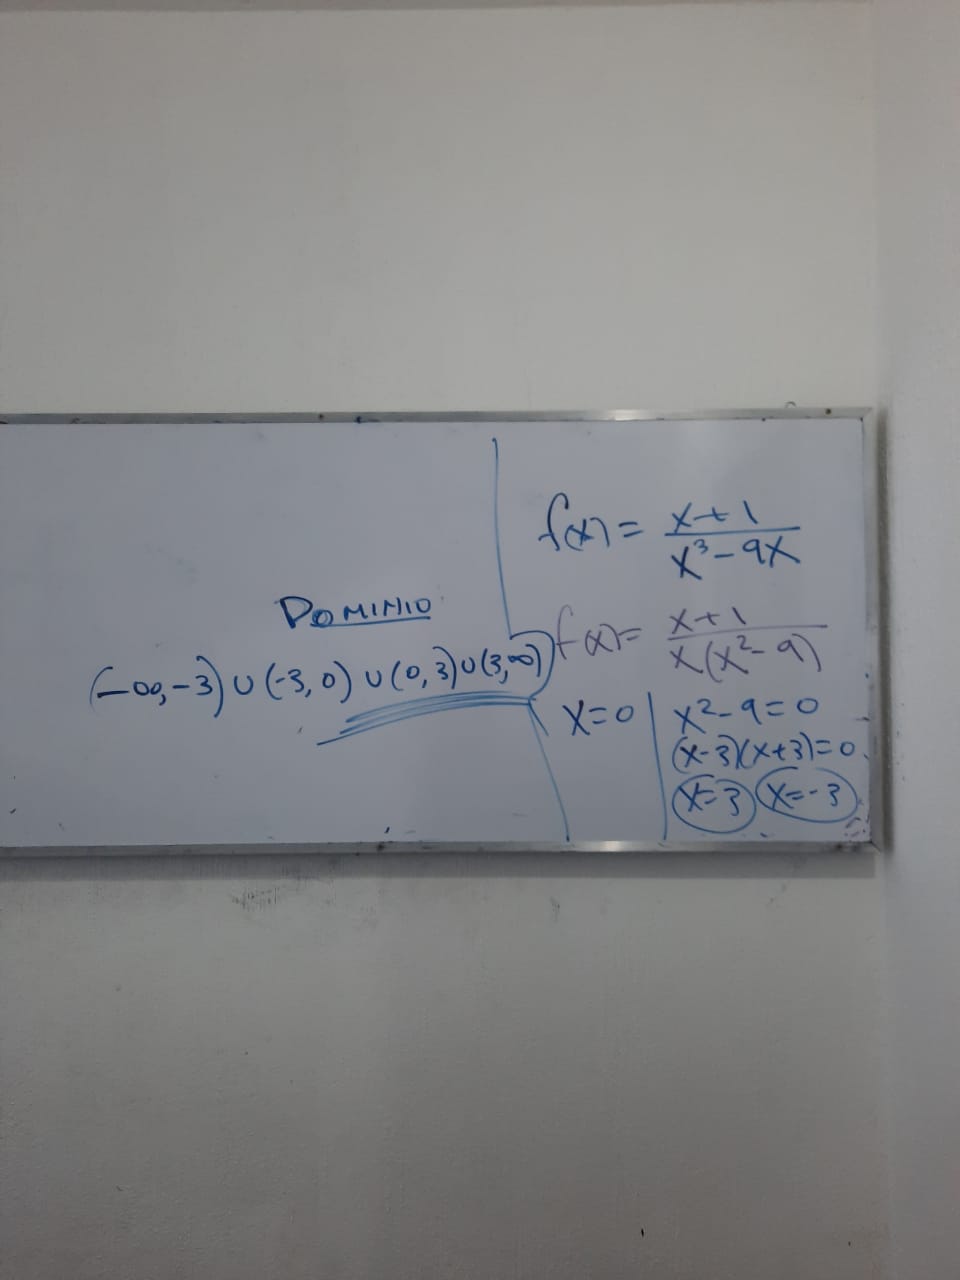 DOMINIO
(-∞,-3) ∪ (-3,0) ∪ (0,3) ∪ (3,∞)
f(x) = x+1 / x³-9x
f(x) = x+1 / x(x²-9)
x=0 | x²-9=0
(x-3)(x+3)=0
x=3 x=-3